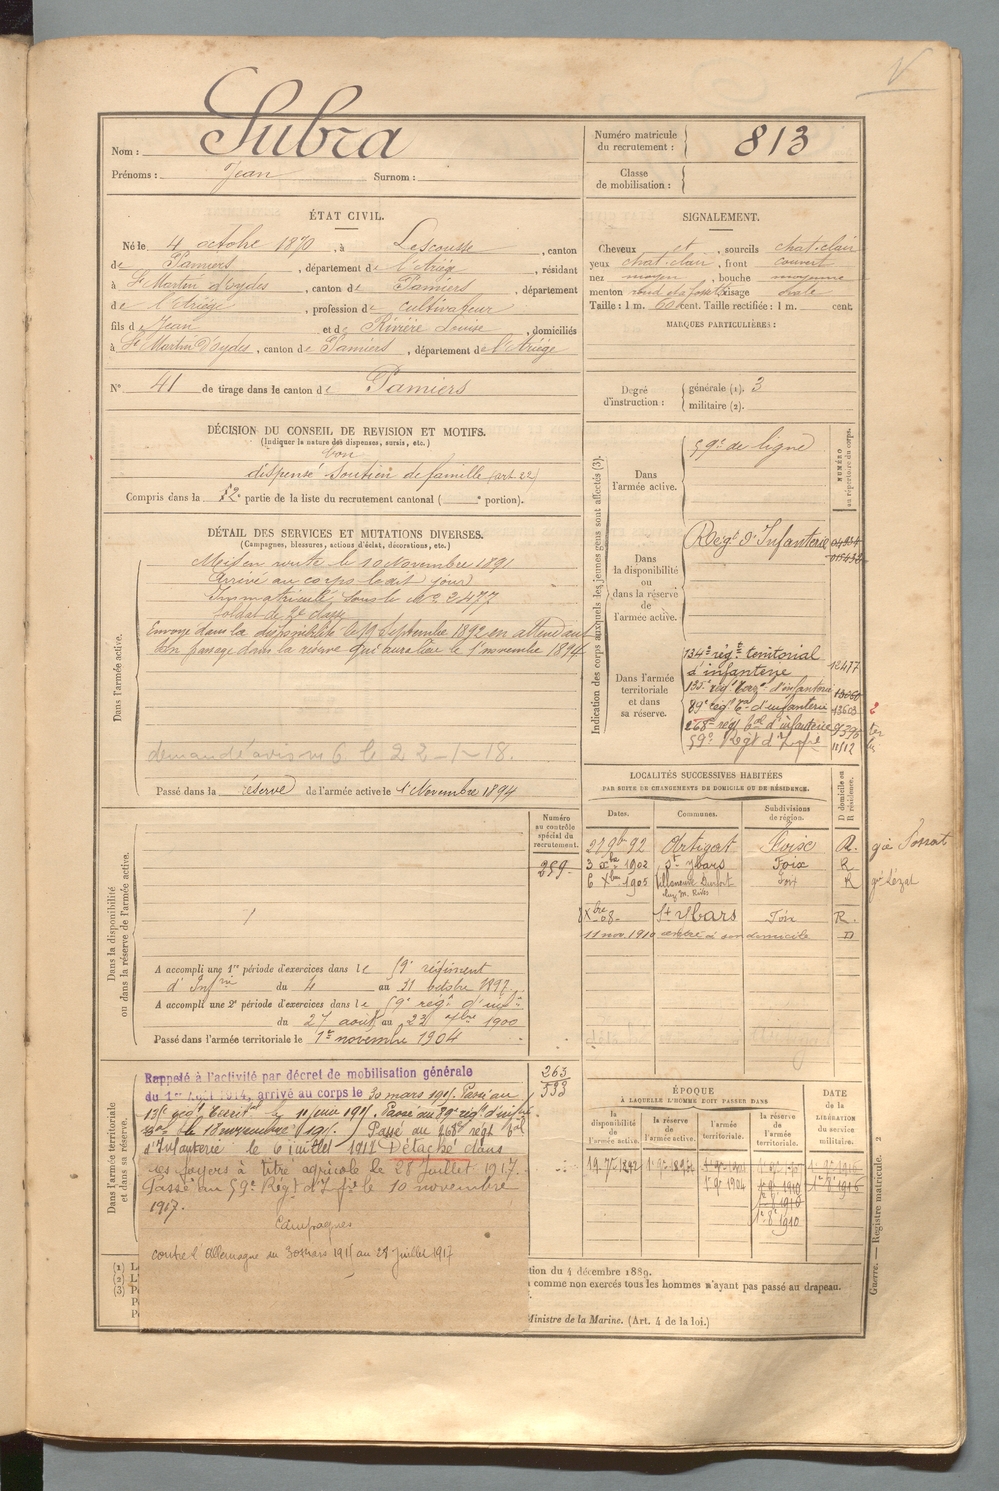 Nom : Subra
Prénoms : Jean Surnom :
Numéro matricule du recrutement : 813
Classe de mobilisation :
ÉTAT CIVIL.
Né le 4 octobre 1870, à Lescousse, canton
de Pamiers, département de l'Ariège, résidant
à St Martin d'Oydes, canton de Pamiers, département
de l'Ariège, profession de cultivateur
fils de Jean et de Rivière Louise, domiciliés
à St Martin d'Oydes, canton de Pamiers, département de l'Ariège
N° 41 de tirage dans le canton de Pamiers
SIGNALEMENT.
Cheveux et, sourcils chat. clair
yeux chat. clair, front couvert
nez moyen, bouche moyenne
menton rond et à fossette visage ovale
Taille : 1 m. 60 cent. Taille rectifiée : 1 m. cent.
MARQUES PARTICULIÈRES :
Degré d'instruction : générale (1). 3
militaire (2).
DÉCISION DU CONSEIL DE REVISION ET MOTIFS.
(Indiquer la nature des dispenses, sursis, etc.)
bon
dispensé Soutien de famille (art 22)
Compris dans la partie de la liste du recrutement cantonal ( e portion).
DÉTAIL DES SERVICES ET MUTATIONS DIVERSES.
(Campagnes, blessures, actions d'éclat, décorations, etc.)
Dans l'armée active.
Mis en route le 10 novembre 1891
Arrivé au corps le dit jour
Immatriculé sous le N° 2477
Soldat de 2e classe
Envoyé dans la disponibilité le 19 Septembre 1892 en attendant
son passage dans la réserve qui aura lieu le 1er novembre 1894
demandé avis M G le 22-1-18.
Passé dans la réserve de l'armée active le 1er Novembre 1894
Indication des corps auxquels les jeunes gens sont affectés (3).
NUMÉRO au répertoire du corps.
Dans l'armée active.
59e de ligne
Dans la disponibilité ou dans la réserve de l'armée active.
Régt d'Infanterie
Dans l'armée territoriale et dans sa réserve.
134e régt territorial
d'infanterie 12477
135e régt terr. d'infanterie
89e régt tal d'infanterie 13603
268e régt tal d'infanterie 9596
59e Régt d'Infie 11112
LOCALITÉS SUCCESSIVES HABITÉES
PAR SUITE DE CHANGEMENTS DE DOMICILE OU DE RÉSIDENCE.
Dates. Communes. Subdivisions de région. D domicile ou R résidence.
27 9b 92 Artigat Foix R.
3 xbre 1902 St Ybars Foix R
6 Xbre 1905 Villeneuve Durfort Foix R gie Lézat
Xbre 08 St Ybars Foix R.
11 nov. 1910 rentré à son domicile D
Numéro au contrôle spécial du recrutement.
259
Dans la disponibilité ou dans la réserve de l'armée active.
A accompli une 1re période d'exercices dans le 59e régiment
d'Infrie du 4 au 31 octobre 1897
A accompli une 2e période d'exercices dans le 59e régt d'infie
du 27 août au 22 7bre 1900
Passé dans l'armée territoriale le 1er novembre 1904
Dans l'armée territoriale et dans sa réserve.
263
533
Rappelé à l'activité par décret de mobilisation générale
du 1er Août 1914, arrivé au corps le 30 mars 1915. Passé au
135e régt territal le 11 juin 1915. Passé au 89e régt d'infie
tal le 18 novembre 1915. Passé au 268e régt tal
d'Infanterie le 6 juillet 1917 Détaché dans
ses foyers à titre agricole le 28 juillet 1917.
Passé au 59e Régt d'Infie le 10 novembre
1917.
Campagnes
contre l'Allemagne du 30 mars 1915 au 28 juillet 1917
ÉPOQUE
À LAQUELLE L'HOMME DOIT PASSER DANS
la disponibilité de l'armée active.
la réserve de l'armée active.
l'armée territoriale.
la réserve de l'armée territoriale.
DATE de la LIBÉRATION du service militaire.
19 7bre 1892
1er 9bre 1894
1er 9e 1904
1er 8e 1910
1er 8e 1916
tion du 4 décembre 1889.
comme non exercés tous les hommes n'ayant pas passé au drapeau.
Ministre de la Marine. (Art. 4 de la loi.)
Guerre. — Registre matricule. 2